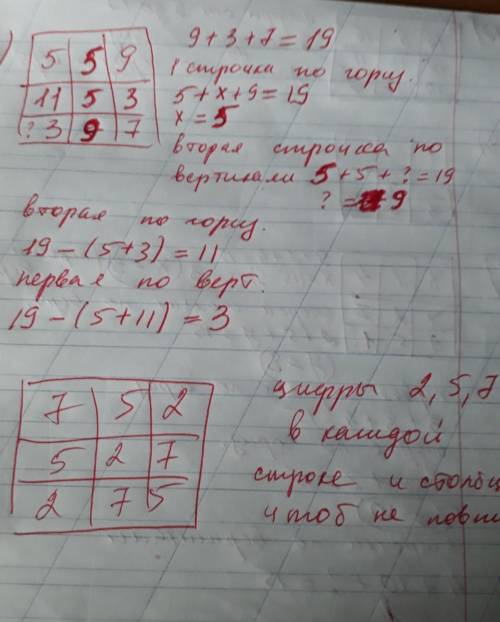 )
5 5 9
11 5 3
? 3 9 7
9+3+7=19
1 строчка по гориз.
5+x+9=19
x=5
вторая строчка по
вертикали 5+5+?=19
?=9
вторая по гориз.
19-(5+3)=11
первая по верт.
19-(5+11)=3
7 5 2
5 2 7
2 7 5
цифры 2,5,7
в каждой
строке и столбц
чтоб не повт